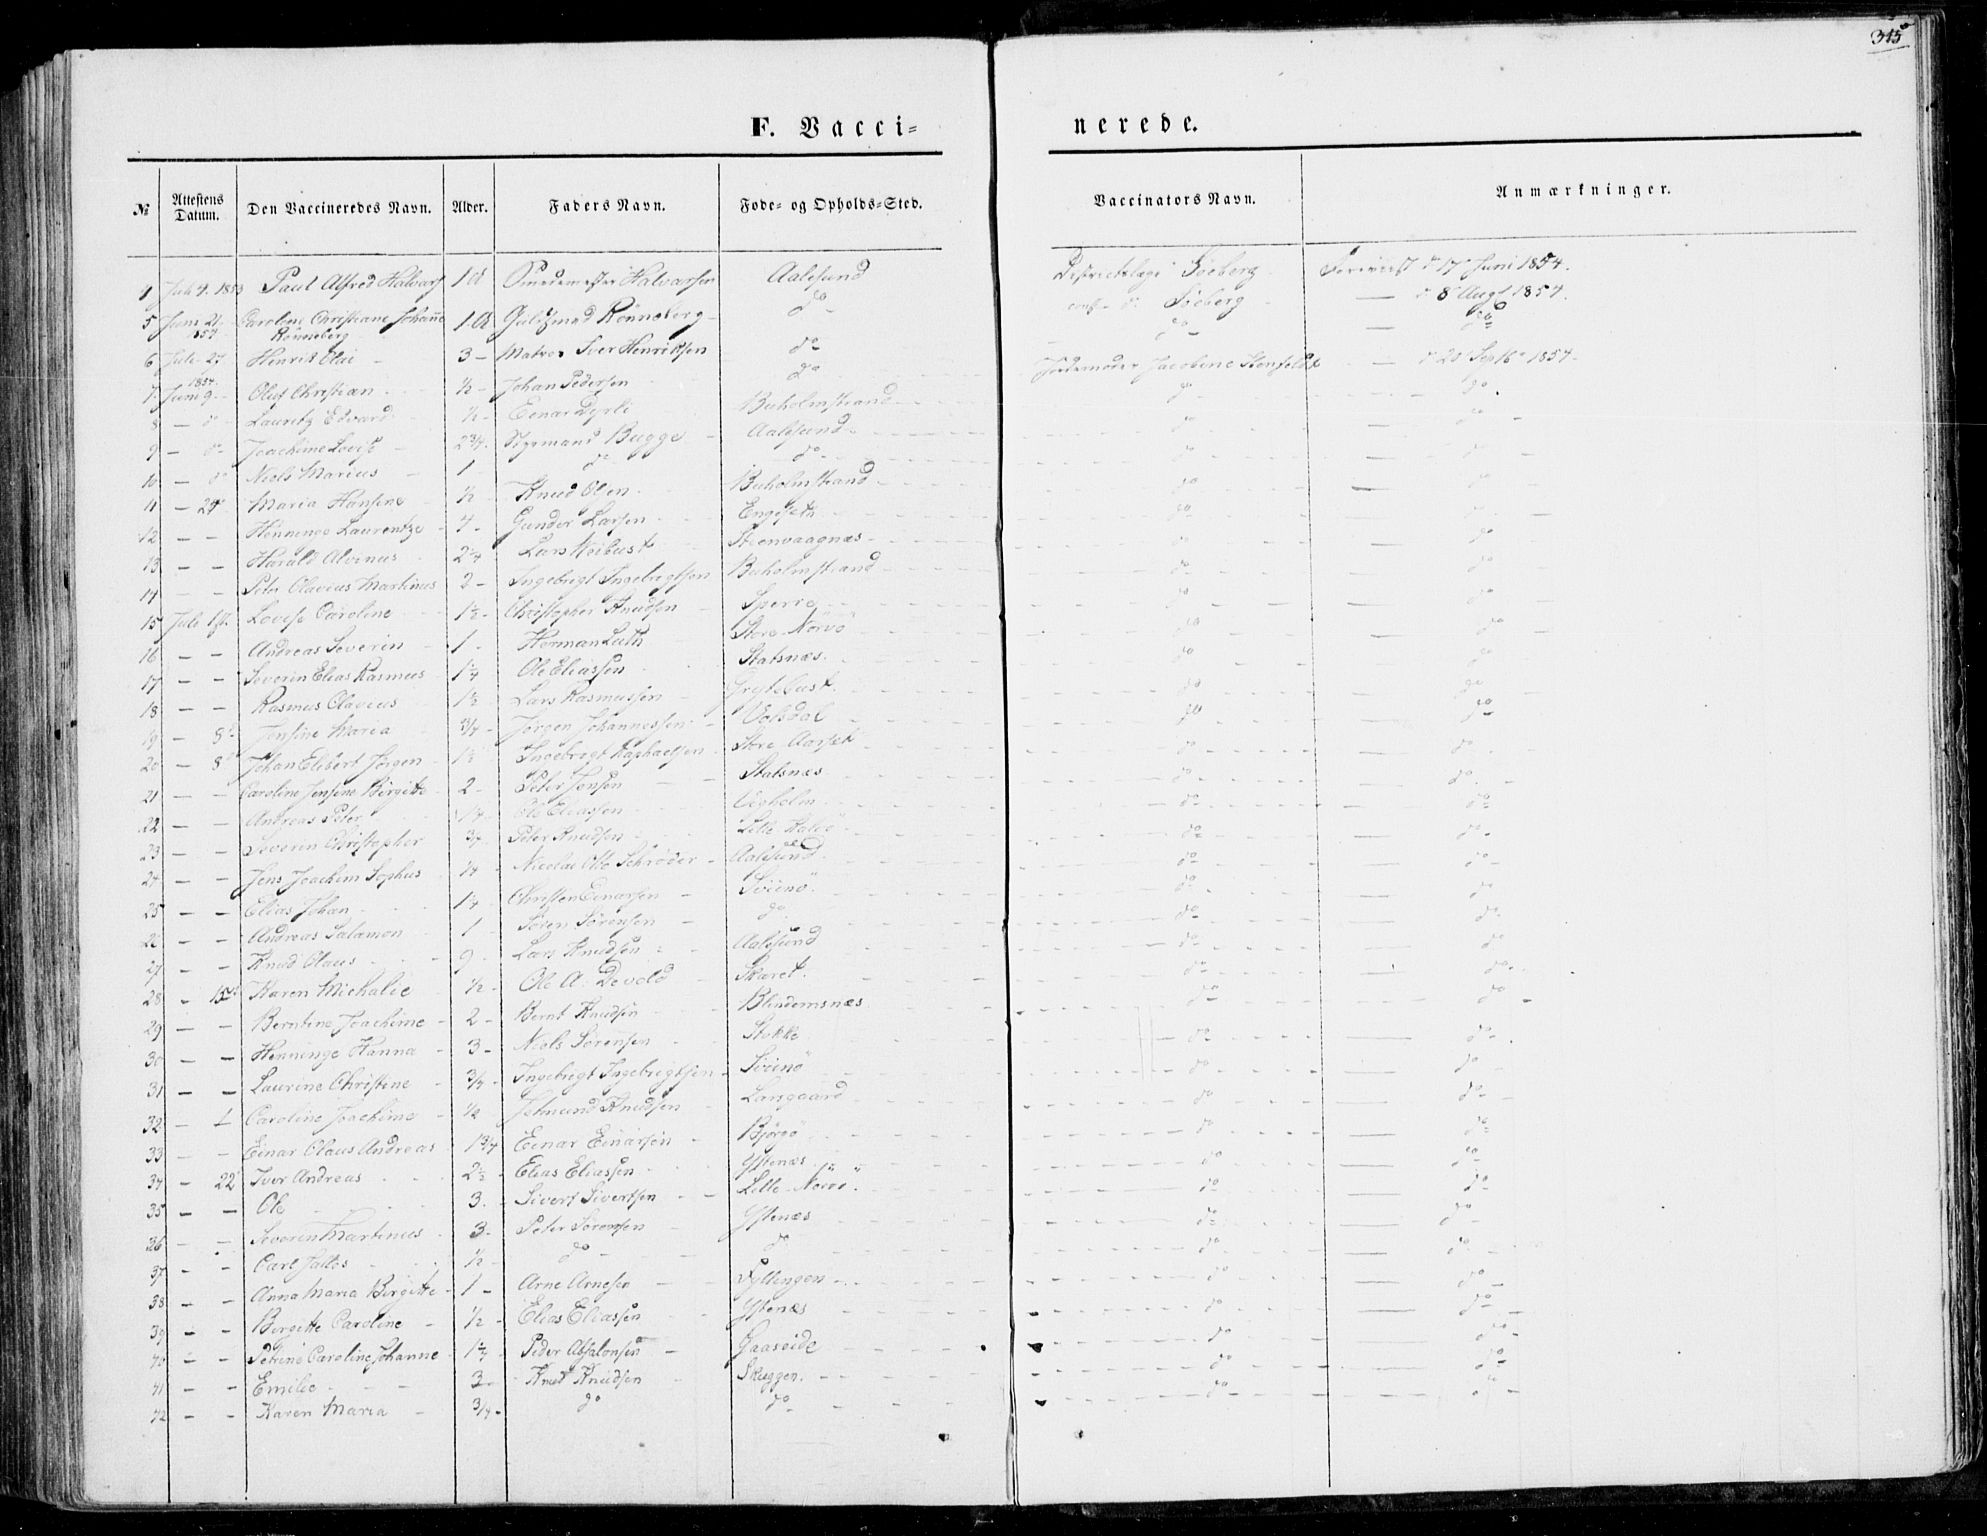 315
F. Vaccinerede.
№ | Attestens Datum. | Den Vaccineredes Navn. | Alder. | Faders Navn. | Fode- og Opholds-Sted. | Vaccinators Navn. | Anmærkninger.
4 | Juli 4. 1853 | Paul Alfred Halvars | 1 | Halvarsen | Aalesund | Søeberg | Foreviist d 17 Juni 1854.
5 | Juni 21. | Caroline Christiane Johanne Rönneberg | 1 | Guldsmed Rönneberg | do | Søeberg | d 8 Augt 1854.
6 | Juli 27 | Henrik Olai | 3 | Matros Iver Henriksen | do | do | do
7 | 1854. Juni 9. | Oluf Christian | ½ | Johan Pedersen | do | Jordemoder Jacobine | 1854.
8 | — do | Lauritz Edvard | ½ | Einar Dyrli | Buholmstrand | do | do
9 | — do | Joachime Lovise | 2¾ | Styrmand Bugge | Aalesund | do | do
10 | — do | Niels Marius | 1 | do | do | do | do
11 | — 24 | Maria Hansine | ½ | Knud Olsen | Buholmstrand | do | do
12 | — — | Henninge Laurentze | 4 | Gunder Larsen | Engesetn | do
13 | — — | Harald Alvinus | 2¼ | Lars Neibust | Steenvaagnæs | do | do
14 | — — | Peter Olavius Martinus | 2 | Ingebrigt Ingebrigtsen | Buholmstrand | do | do
15 | Juli 1st. | Lovise Caroline | 1½ | Christopher Knudsen | Sperre | do | do
16 | — — | Andreas Severin | 1 | Herman Luth | Store Nörvö | do | do
17 | — — | Severin Elias Rasmus | 1¼ | Ole Eliassen | Statsnæs | do | do
18 | — — | Rasmus Olavius | 1½ | Lars Rasmussen | Grytebust | do | do
19 | — 8 | Jensine Maria | ¾ | Jørgen Johannessen | Volsdal | do | do
20 | — 8 | Johan Elibert Jørgen | 1½ | Ingebrigt Raphaelsen | Store Aarset | do | do
21 | — — | Caroline Jensine Birgitte | 2 | Peter Jensen | Statsnæs | do | do
22 | — — | Andreas Peter | ¼ | Ole Eliassen | Vegholm | do | do
23 | — — | Severin Christopher | ¾ | Peter Knudsen | Lille Kalvö | do | do
24 | — — | Jens Joachim Sophus | ¼ | Nicolai Otto Schrøder | Aalesund | do | do
25 | — — | Elias Johan | 1¼ | Christen Einarsen | Svinö | do | do
26 | — — | Andreas Salamon | 1 | Søren Sørensen | do | do | do
27 | — — | Knud Olaus | 9 | Lars Knudsen | Aalesund | do | do
28 | — 15 | Karen Michalie | ½ | Ole A. Devold | Skaret | do | do
29 | — — | Berntine Joachime | 2 | Bernt Knudsen | Blindemsnæs | do | do
30 | — — | Henninge Hanna | 3 | Niels Sørensen | Stokke | do | do
31 | — — | Laurine Christine | ¾ | Ingebrigt Ingebrigtsen | Svinö | do | do
32 | — | Caroline Joachime | ½ | Jetmund Knudsen | Langgaard | do | do
33 | — — | Einar Olaus Andreas | 1¾ | Einar Einarsen | Björvö | do | do
34 | — 22 | Iver Andreas | 2½ | Elias Eliassen | Ystenæs | do | do
35 | — — | Ole | 3 | Sivert Sivertsen | Lille Nörvö | do | do
36 | — — | Severin Martinus | 3 | Peter Sørensen | Ystenæs | do | do
37 | — — | Carl | ½ | do | do | do | do
38 | — — | Anna Maria Birgitte | 1 | Arne Arnesen | Fyllingen | do | do
39 | — — | Birgitte Caroline | ½ | Elias Eliassen | Ystenæs | do | do
40 | — — | Petrine Caroline Johanne | 1¼ | Peder Absalonsen | Gaaseide | do | do
41 | — — | Emilie | 3 | Knut Knudsen | Skuggen | do | do
42 | — — | Karen Maria | ¾ | do | do | do | do